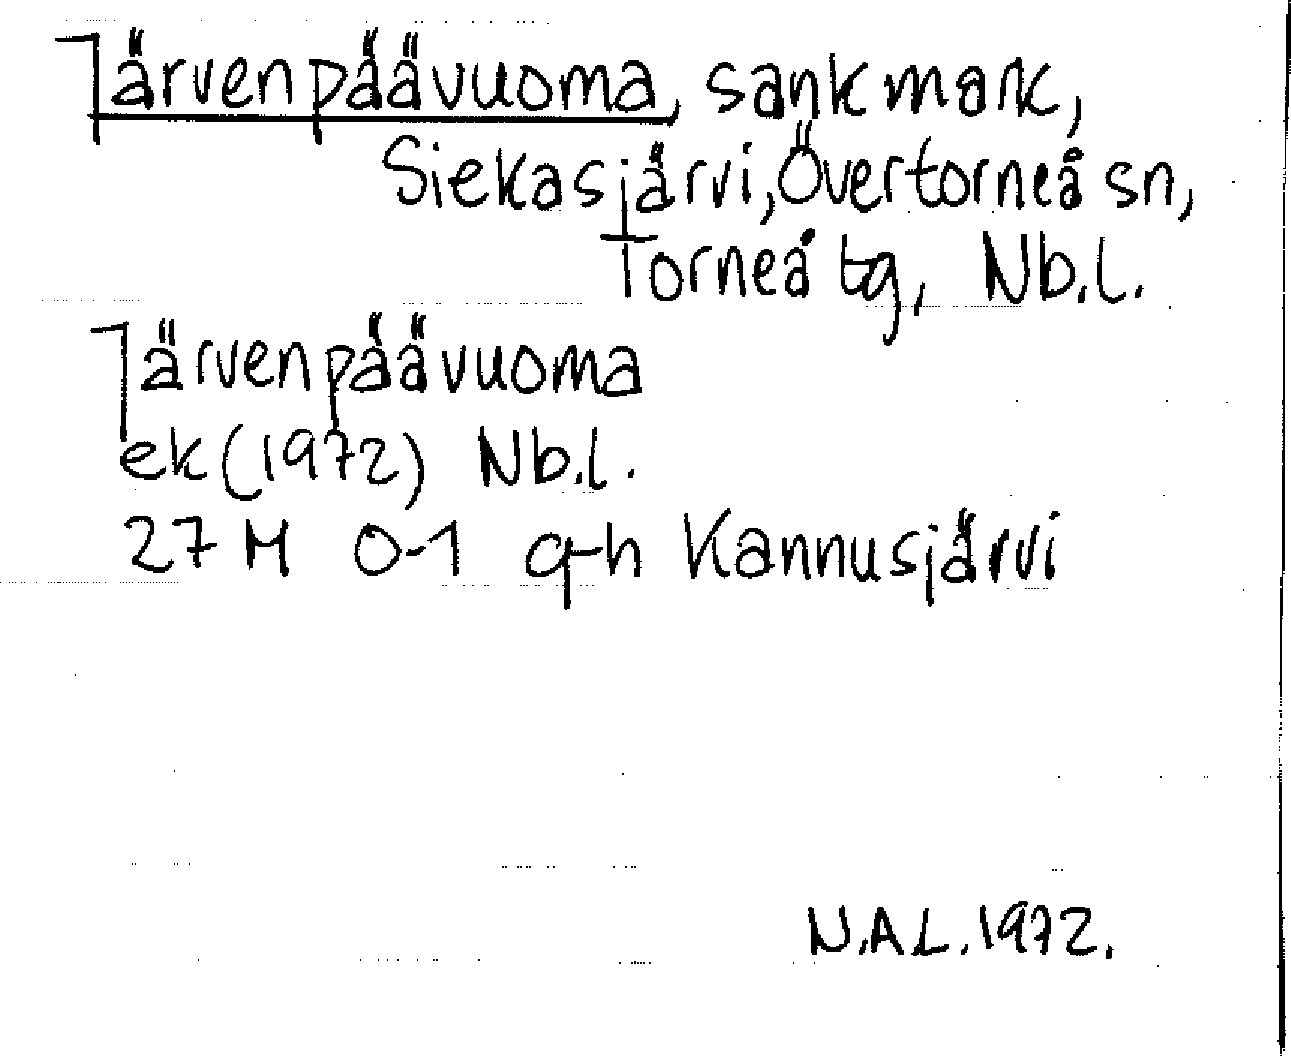 Järvenpäävuoma, sankmark,
Siekasjärvi, Övertorneå sn,
Torneå tg, Nb.l.
Järvenpäävuoma
ek (1972) Nb.l.
27 M 0-1 g-h Kannusjärvi
N.A.L. 1972.